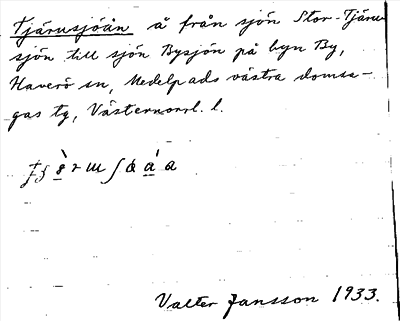 Tjärusjöån å från sjön Stor-Tjäru-
sjön till sjön Bysjön på byn By,
Haverö sn, Medelpads västra domsa-
gas tg, Västernorrl. l.
Valter Jansson 1933.